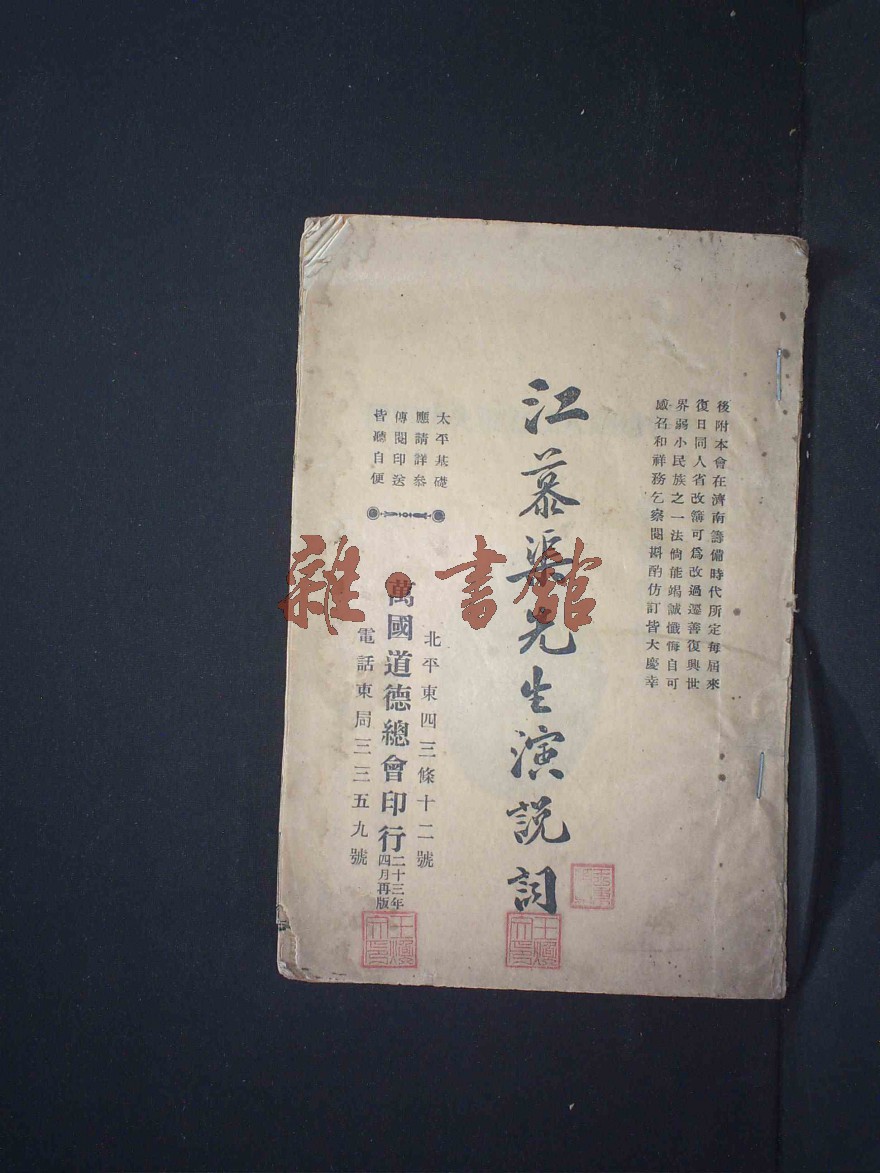 後附本會在濟南籌備時代所定每屆來
復日同人省改簿可為改過遷善復興世
界弱小民族之一法倘能竭誠懺悔自可
感召和祥務乞察閱斟酌仿訂皆大慶幸
江慕渠先生演說詞
太平基礎
應請詳參
傳閱印送
皆聽自便
北平東四三條十二號
萬國道德總會印行
二十三年
四月再版
電話東局三三五九號
雜·書館